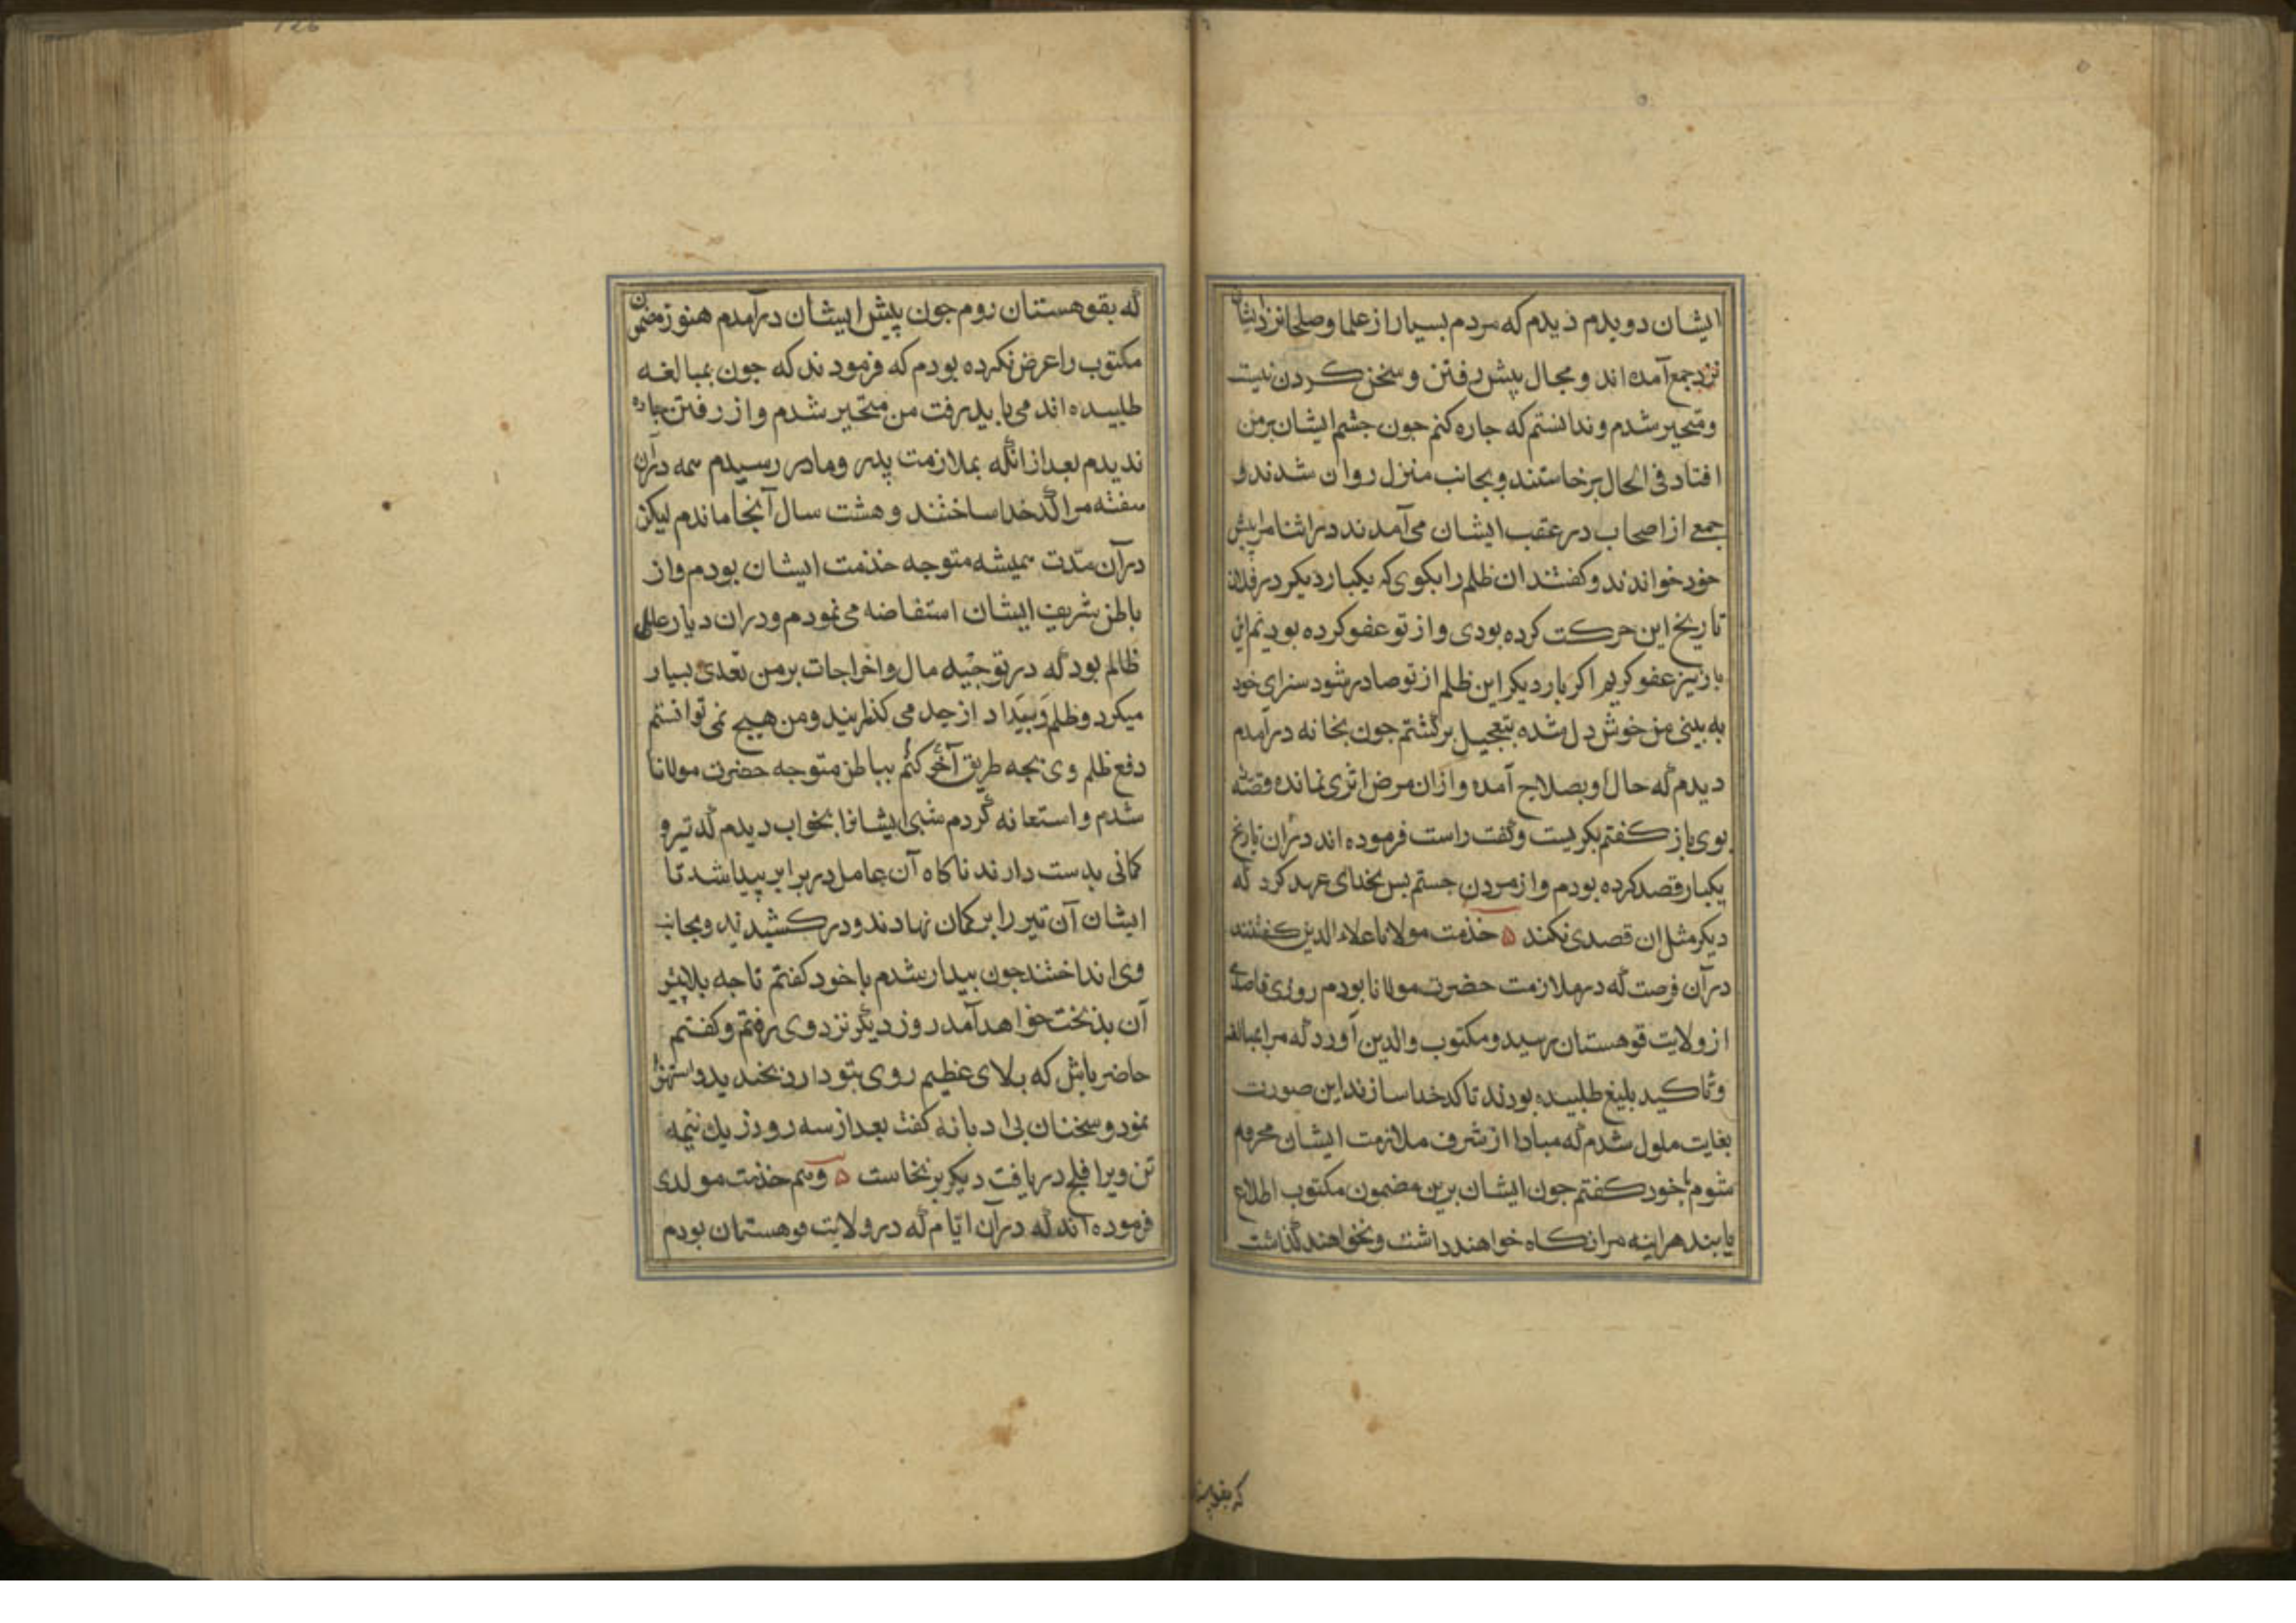 ایشان دویدم ذیدم که مردم بسیار از علما و صلحا نزد ایشان
نزد جمع آمده اند و مجال پیش رفتن و سخن کردن نیست
و متحیر شدم و ندانستم که جاره کنم جون جشم ایشان بر من
افتاد فی الحال برخاستند و بجانب منزل روان شدند و
جمعی از اصحاب در عقب ایشان می آمدند در اثنا مرا پیش
خود خواندند و کفتند ان ظلم را بکوی که یکبار دیکر در فلان
تاریخ این حرکت کرده بودی و از تو عفو کرده بودیم این
بار نیز عفو کردیم اکر بار دیکر این ظلم از تو صادر شود سزای خود
به بینی من خوش دل شده بتعجیل برکشتم جون بخانه درآمدم
دیدم که حال او بصلاح آمده و ازان مرض اثری نمانده قصه
بوی باز کفتم بکریست و کفت راست فرموده اند دران تاریخ
یکبار قصد کرده بودم و از مردن جستم پس بخدای عهد کرد که
دیکر مثل ان قصدی نکند ۵ خذمت مولانا علاء الدین کفتند
در آن فرصت که در ملازمت حضرت مولانا بودم روزی قاصدی
از ولایت قوهستان رسید و مکتوب والدین آورد که مرا بمبالغه
و تاکید بلیغ طلبیده بودند تا کدخدا سازند این صورت
بغایت ملول شدم که مبادا از شرف ملازمت ایشان محروم
شوم با خود کفتم جون ایشان برین مضمون مکتوب اطلاع
یابند هراینه مرا نکاه خواهند داشت و نخواهند کذاشت
که بقوهستان
که بقوهستان روم جون پیش ایشان درآمدم هنوز مضمون
مکتوب را عرض نکرده بودم که فرمودند که جون بمبالغه
طلبیده اند می باید رفت من متحیر شدم و از رفتن جاره
ندیدم بعد از انکه بملازمت پدر و مادر رسیدم سمه در آن
سفته مرا کدخدا ساختند و هشت سال آنجا ماندم لیکن
در آن مدت همیشه متوجه خذمت ایشان بودم و از
باطن شریف ایشان استفاضه می نمودم و دران دیار عاملی
ظالم بود که در توجیه مال و اخراجات بر من تعدی بسیار
میکرد و ظلم و بیداد از حد می کذرانید و من هیچ نمی توانستم
دفع ظلم وی بجه طریق آخر کنم بباطن متوجه حضرت مولانا
شدم و استعانه کردم شبی ایشانرا بخواب دیدم که تیر و
کمانی بدست دارند ناکاه آن عامل در برابر پیدا شد تا
ایشان آن تیر را بر کمان نهادند و در کشیدند و بجانب
وی انداختند جون بیدار شدم با خود کفتم تا جه بلا پیش
آن بذبخت خواهد آمد روز دیگر نزد وی رفتم و کفتم
حاضر باش که بلای عظیم روی بتو دارد بخندید و استهزا
نمود و سخنان بی ادبانه کفت بعد از سه روز یك نیمه
تن ویرا فلج دریافت دیکر برنخاست ۵ و هم خذمت مولدی
فرموده اند که در آن ایام که در ولایت قوهستان بودم